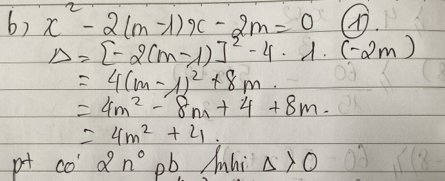 b, x² - 2(m-1)x - 2m = 0 (1)
Δ = [-2(m-1)]² - 4 . 1 . (-2m)
= 4(m-1)² + 8m.
= 4m² - 8m + 4 + 8m.
= 4m² + 4.
pt có 2 n⁰ pb khi Δ > 0